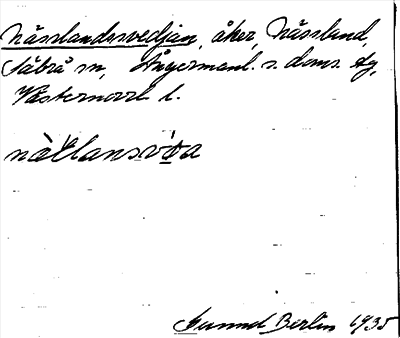 Nässlandsvedjan, åker, Nässland,
Säbrå sn, Ångermanl. s. doms. tg,
Västernorrl l.
Gunnel Berlin 1935